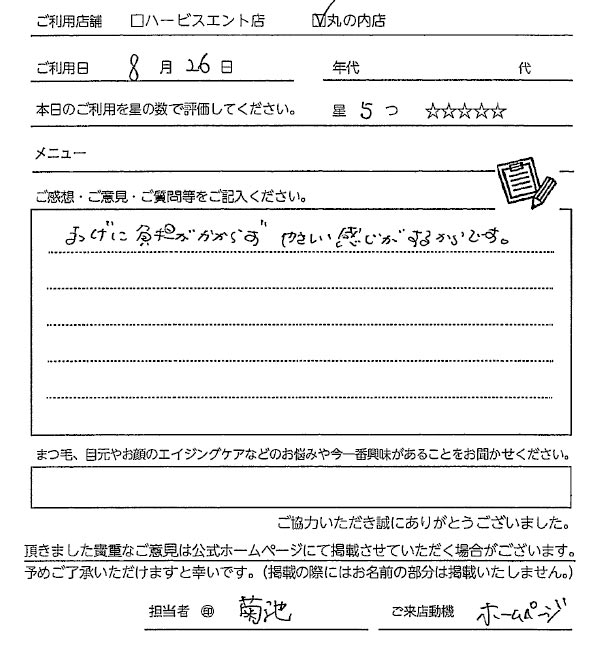 ご利用店舗 □ハービスエント店 ☑丸の内店
ご利用日 8月26日 年代 代
本日のご利用を星の数で評価してください。 星 5つ ☆☆☆☆☆
メニュー
ご感想・ご意見・ご質問等をご記入ください。
まつげに負担がかからず やさしい感じがするからです。
まつ毛、目元やお顔のエイジングケアなどのお悩みや今一番興味があることをお聞かせください。
ご協力いただき誠にありがとうございました。
頂きました貴重なご意見は公式ホームページにて掲載させていただく場合がございます。
予めご了承いただけますと幸いです。（掲載の際にはお名前の部分は掲載いたしません。）
担当者 ㊞ 菊池 ご来店動機 ホームページ